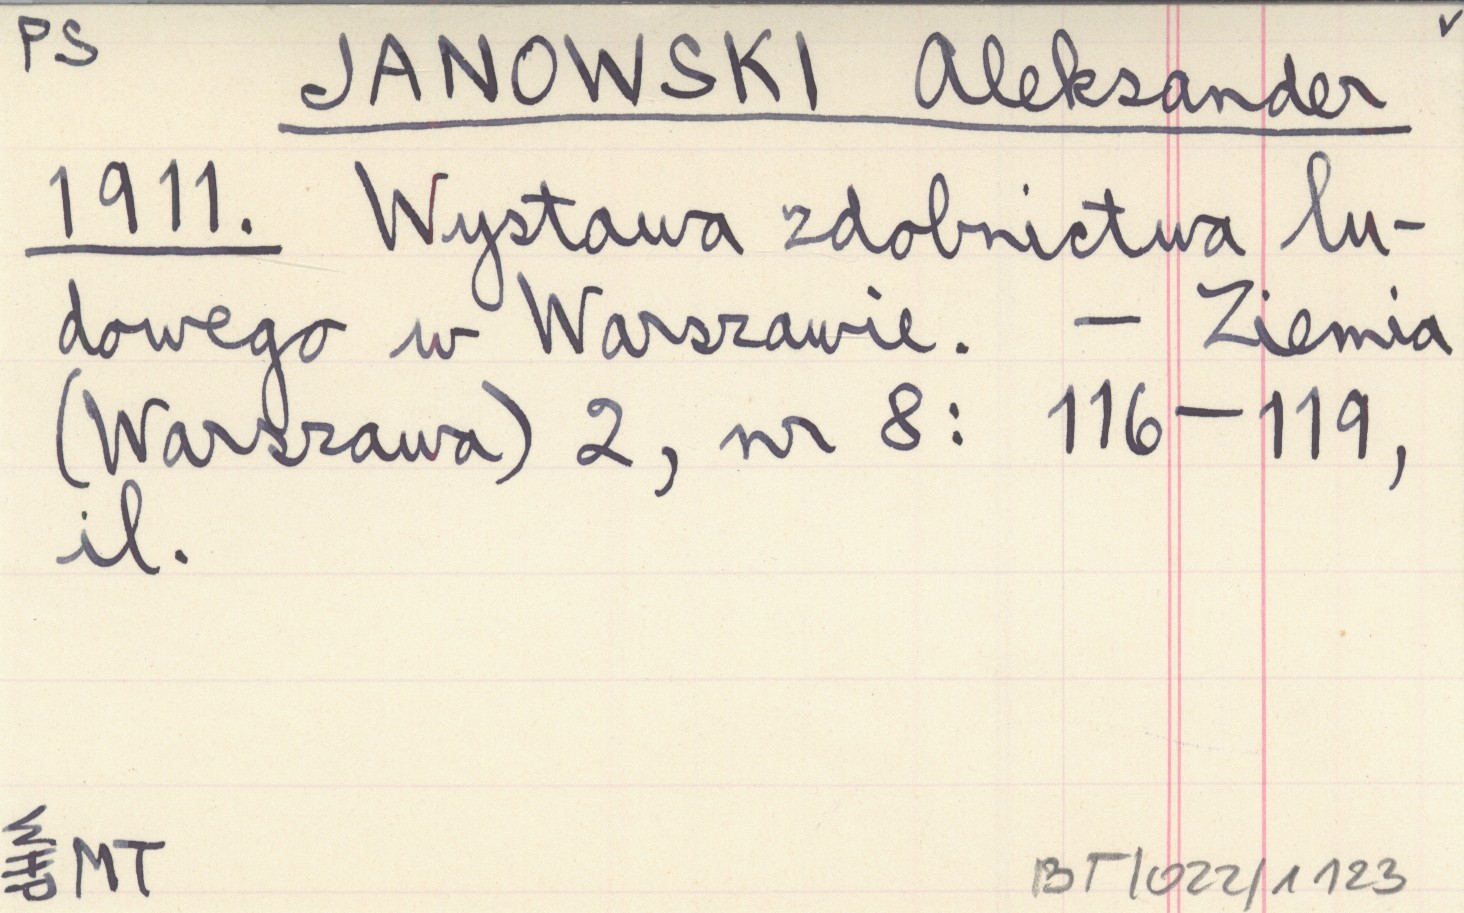 PS
v
JANOWSKI Aleksander
1911. Wystawa zdobnictwa lu-
dowego w Warszawie. – Ziemia
(Warszawa) 2, nr 8: 116–119,
il.
MT
BT/022/1123